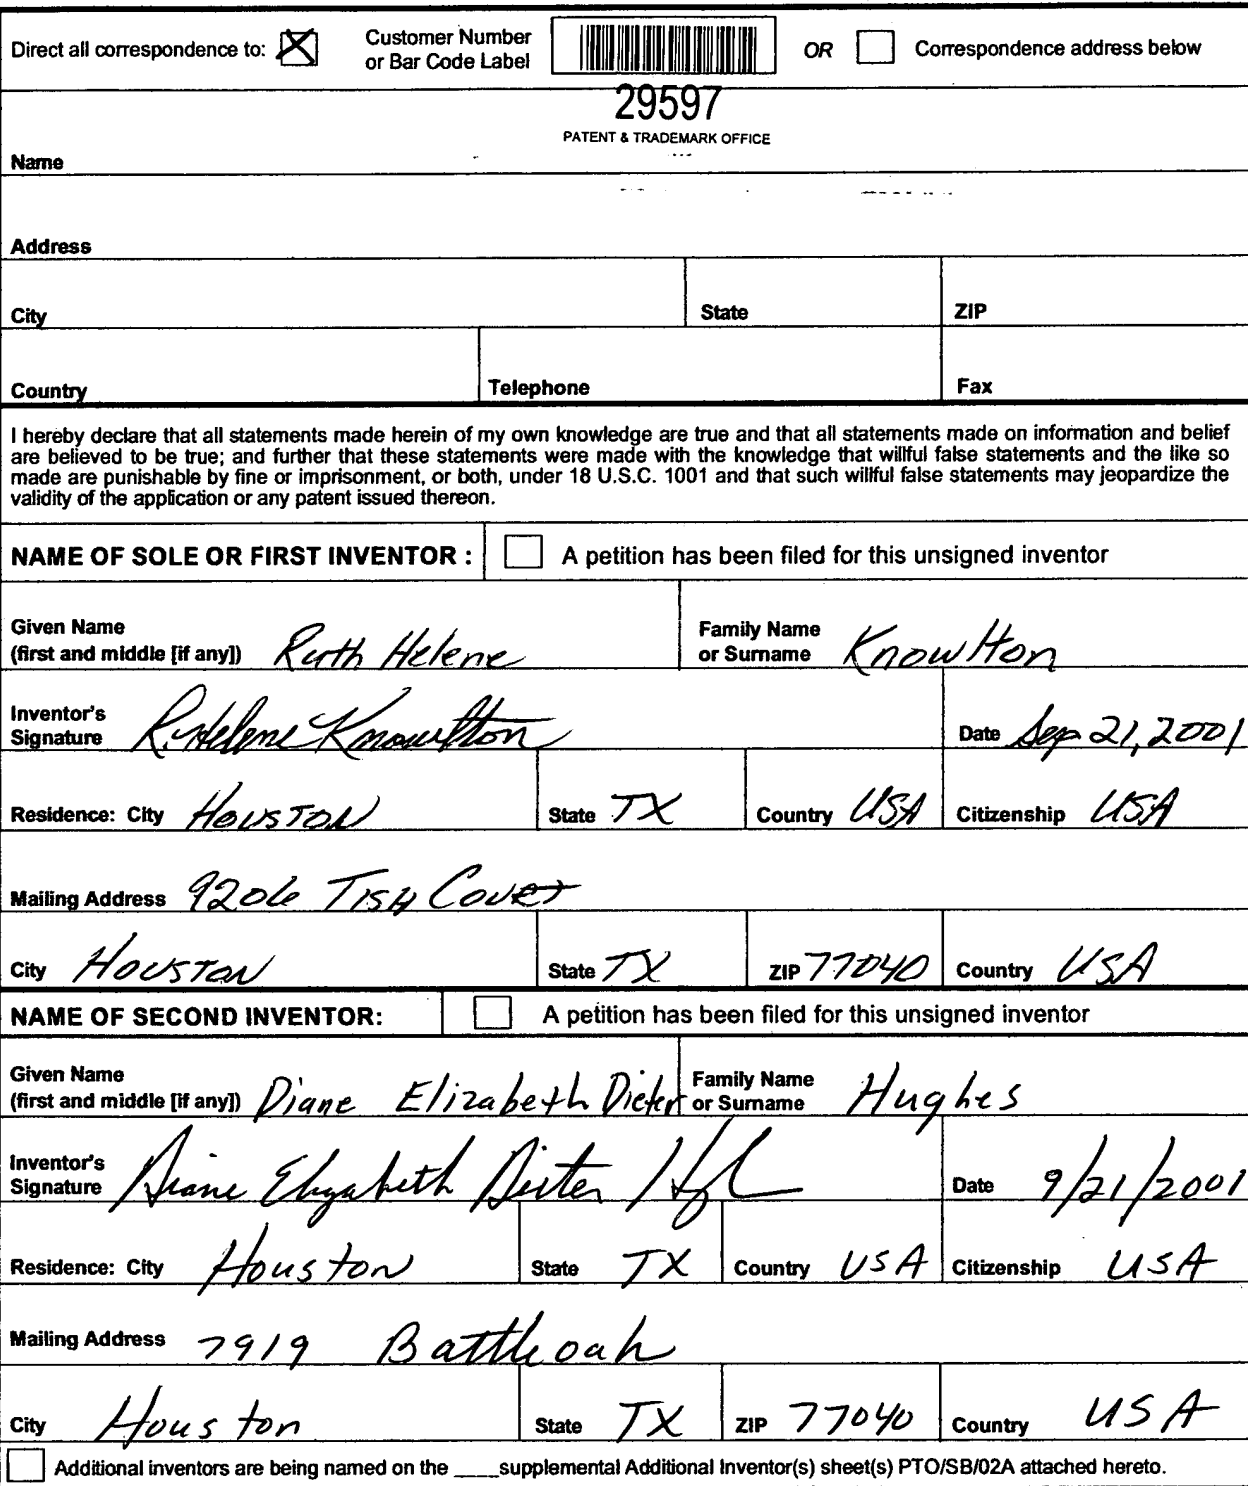 Direct all correspondence to: Customer Number or Bar Code Label OR Correspondence address below
29597
PATENT & TRADEMARK OFFICE
Name
Address
City State ZIP
Country Telephone Fax
I hereby declare that all statements made herein of my own knowledge are true and that all statements made on information and belief
are believed to be true; and further that these statements were made with the knowledge that willful false statements and the like so
made are punishable by fine or imprisonment, or both, under 18 U.S.C. 1001 and that such willful false statements may jeopardize the
validity of the application or any patent issued thereon.
NAME OF SOLE OR FIRST INVENTOR : A petition has been filed for this unsigned inventor
Given Name (first and middle [if any]) Ruth Helene Family Name or Surname Knowlton
Inventor's Signature R. Helene Knowlton Date Sep 21, 2001
Residence: City Houston State TX Country USA Citizenship USA
Mailing Address 9206 Tish Court
City Houston State TX ZIP 77040 Country USA
NAME OF SECOND INVENTOR: A petition has been filed for this unsigned inventor
Given Name (first and middle [if any]) Diane Elizabeth Dieter Family Name or Surname Hughes
Inventor's Signature Diane Elizabeth Dieter Date 9/21/2001
Residence: City Houston State TX Country USA Citizenship USA
Mailing Address 7919 Battleoak
City Houston State TX ZIP 77040 Country USA
Additional inventors are being named on the ____supplemental Additional Inventor(s) sheet(s) PTO/SB/02A attached hereto.